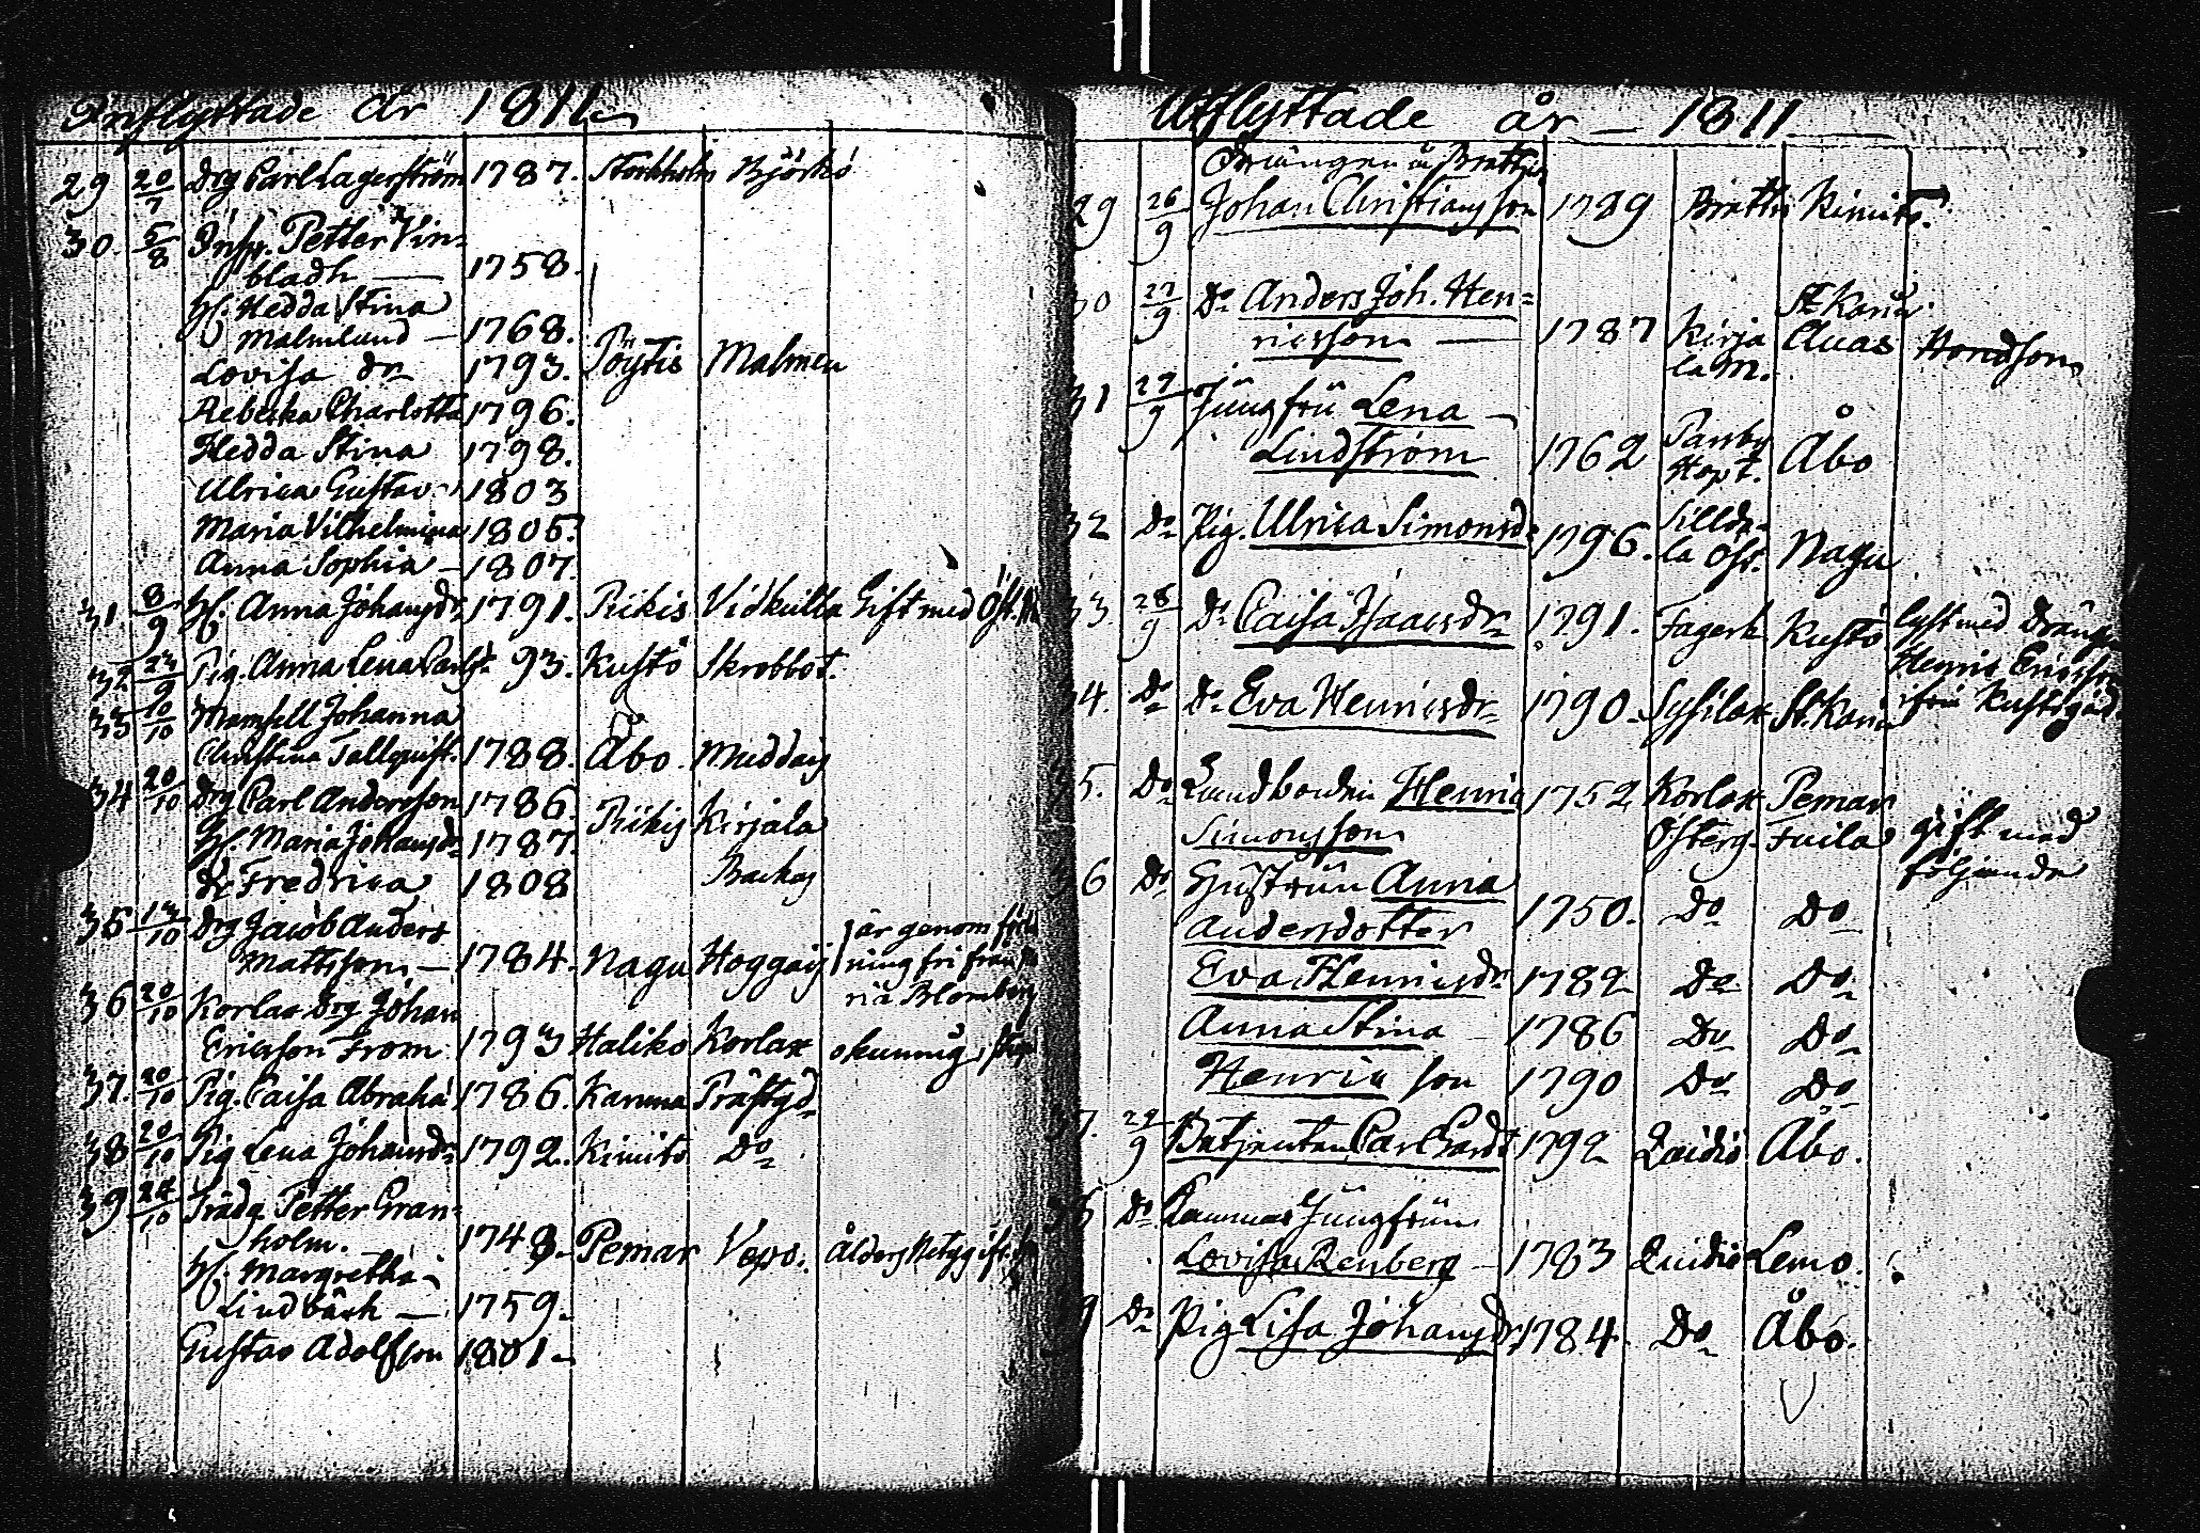 Inflyttade år 1811
29 20/7 Drg Carl Lagerström 1787. Stockholm Björkö
30. 5/8 Insp. Petter Vin=
bladh — 1758.
H. Hedda Stina
Malmlund — 1768.
Lovisa Dr 1793. Pöytis Malmen
Rebecka Charlotta 1796.
Hedda Stina 1798.
Ulrica Gustav. 1803
Maria Vilhelmina 1805.
Anna Sophia — 1807.
31. 8/9 H. Anna Johansdr 1791. Piikis Vidkulla Gift med
32 23/9 Pig. Anna Lena Carlsdr 93. Kustö Skrobböt.
33 10/10 Mamsell Johanna
Christina Tallquist. 1788. Åbo. Muddais
34 20/10 Drg Carl Andersson 1786.
H. Maria Johansdr 1787. Piikis Kirjala
Dr Fredrica 1808 Backas
35 13/10 Drg Jacob Anders
Mattsson — 1784. Nagu Hoggais
är genom
ning fri från
ria Blomberg
36 20/10 Korlax Drg Johan
Ericsson From 1793 Haliko Korlax okunnig
37. 20/10 Pig. Caisa Abraha 1786. Karuna Prästgd
38 20/10 Pig Lena Johansdr 1792. Kimito Do
39 24/10 Trädg. Petter Gran=
holm. 174 Pemar Åldersbetyg
H. Margretha
Lindbäck — 1759.
Gustav Adolfsson 1801.
Utflyttade år — 1811
Drängen
29 26/9 Johan Christiansson 1789 Brattn Kimito.
30 27/9 Do Anders Joh. Hen=
ricsson — 1787 Kirja
la M. St Karin
31 27/9 Jungfru Lena —
Lindström 1762 Åbo
32 Do Pig. Ulrica Simonsd. 1796. Nagu
33. 28/9 Do Caisa Isaacsdr 1791. Fagerh. Kustö lyst med Dräng
Henric Ericsson
ifrån Kustögård
34. Do Do Eva Henricsdr 1790. Sysilax St. Karin
35. Do Landbonden Henric 1752 Korlax Pemar
Simonsson Österg. gift med
följande
36 Do Hustrun Anna
Andersdotter 1750. Do Do
Eva Henricsdr 1782 Do Do
Anna Stina — 1786 Do Do
Henric son 1790 Do Do
37. 29/9 Båtjenten Carl 1792 Qvidió Åbo.
38 Do Cammar Jungfrun
Lovisa Renberg — 1783 Qvidió Lemo.
39 Do Pig Lisa Johansdr 1784. Do Åbo.